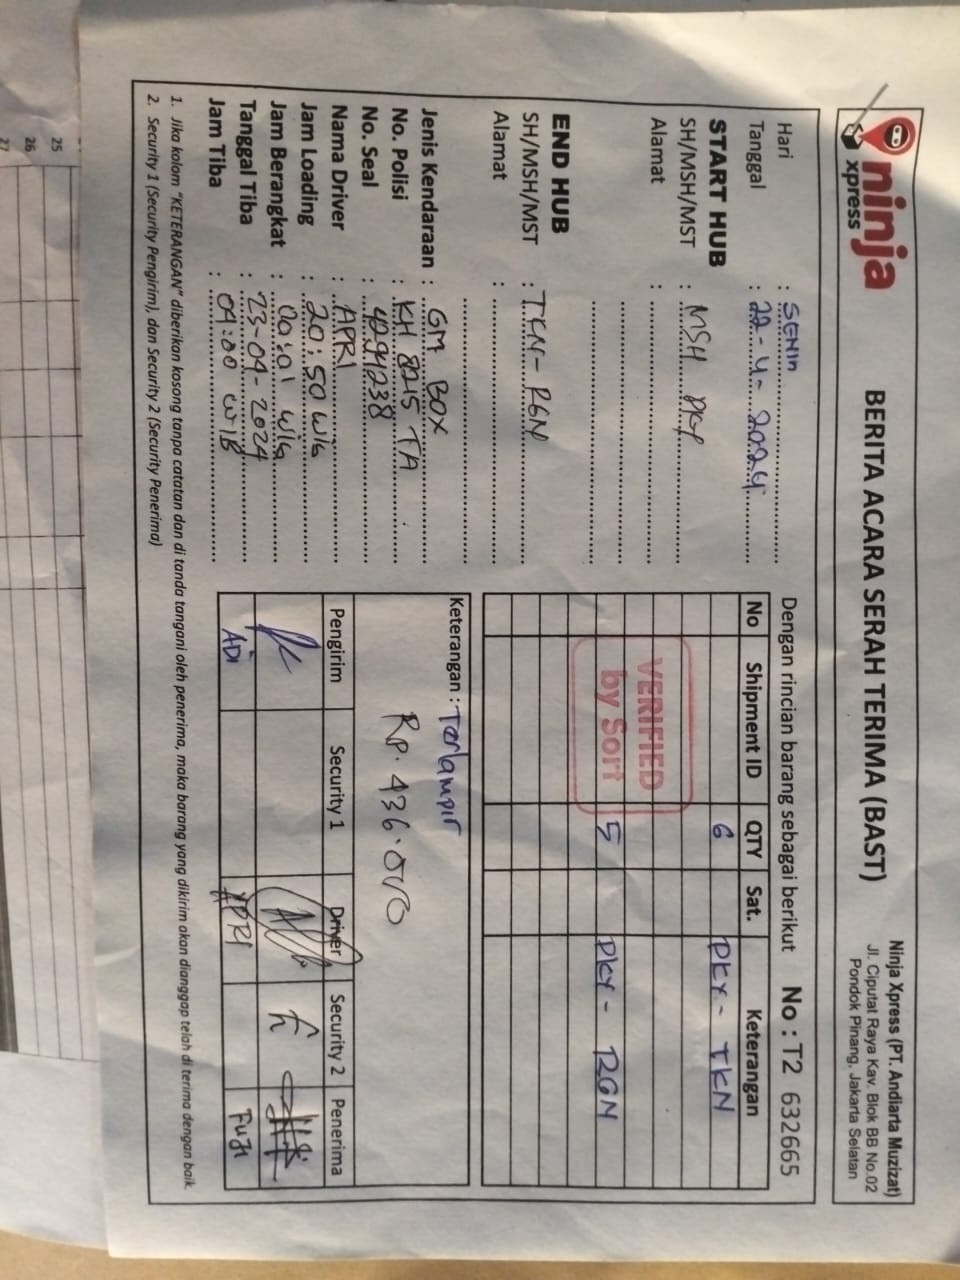 ninja
xpress
BERITA ACARA SERAH TERIMA (BAST)
Ninja Xpress (PT. Andiarta Muzizat)
Jl. Ciputat Raya Kav. Blok BB No.02
Pondok Pinang, Jakarta Selatan
Hari : SENIN
Tanggal : 22-4-2024
START HUB
SH/MSH/MST : MSH PKY
Alamat :
END HUB
SH/MSH/MST : TKN-RGN
Alamat :
Jenis Kendaraan : GM BOX
No. Polisi : KH 8215 TA
No. Seal : 4294238
Nama Driver : APRI
Jam Loading : 20:50 WIB
Jam Berangkat : WIB
Tanggal Tiba : 23-04-2024
Jam Tiba : 04:00 WIB
Dengan rincian barang sebagai berikut No : T2 632665
No Shipment ID QTY Sat. Keterangan
6 PKY-TKN
5 PKY-RGN
VERIFIED
by Sort
Keterangan : Terlampir
Rp. 436.000
Pengirim Security 1 Driver Security 2 Penerima
ADI APRI FUJI
1. Jika kolom "KETERANGAN" diberikan kosong tanpa catatan dan di tanda tangani oleh penerima, maka barang yang dikirim akan dianggap telah di terima dengan baik.
2. Security 1 (Security Pengirim), dan Security 2 (Security Penerima)
25
26
27